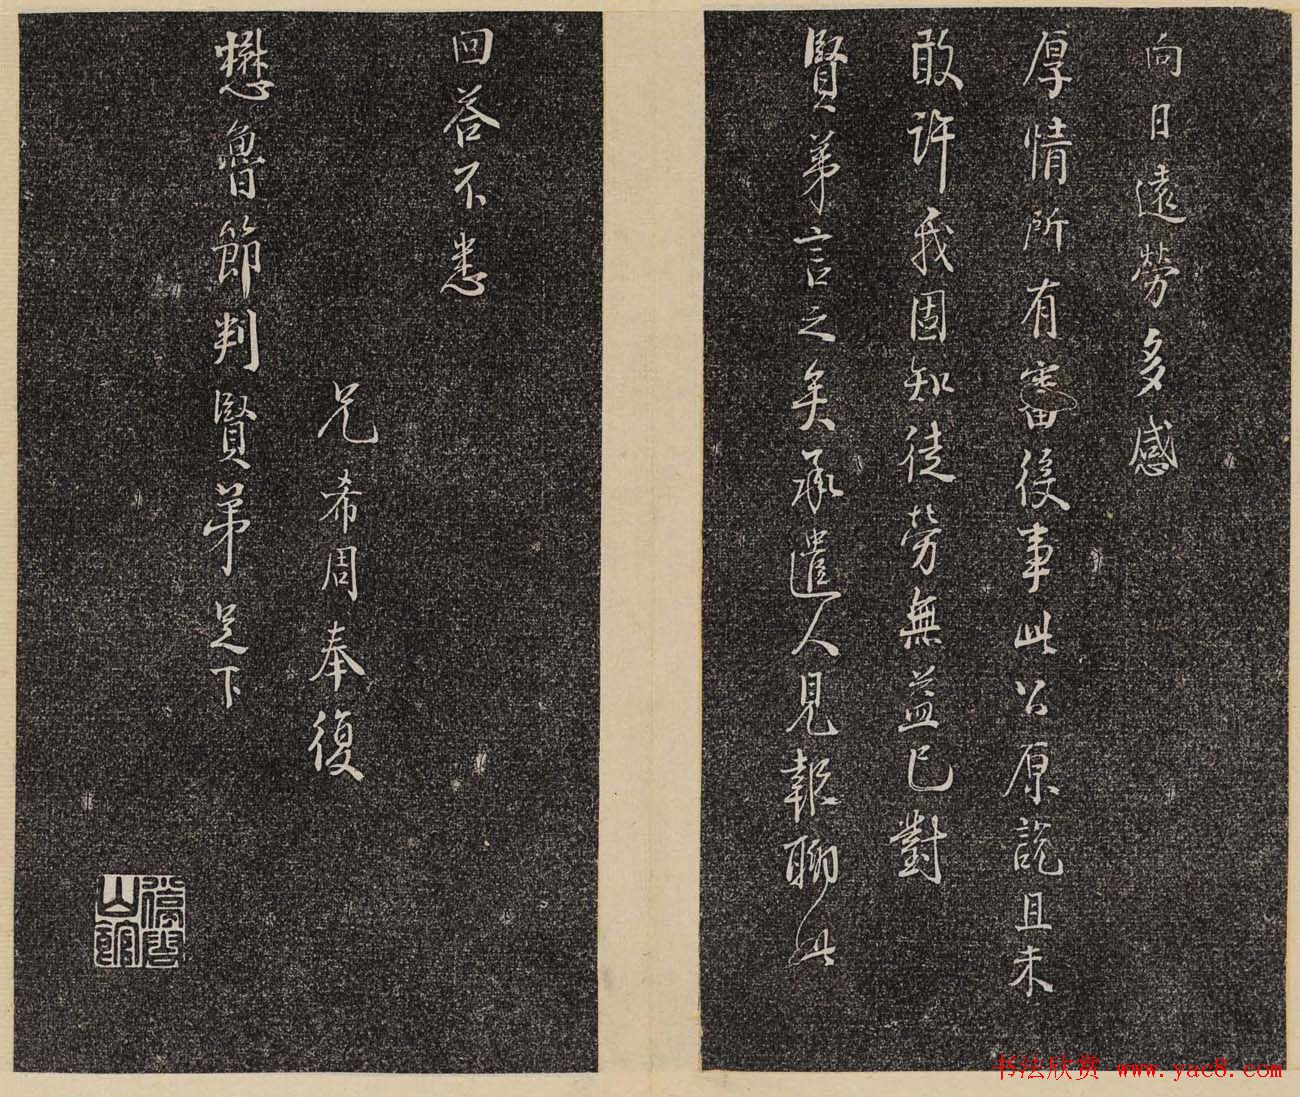 向日遠勞多感
厚情所有審後事此公原説且未
敢許我固知徒勞無益已對
賢弟言之矣承遣人見報聊此
回荅不悉
兄希周奉復
懋魯節判賢弟足下
停雲山館
书法欣赏 www.yac8.com